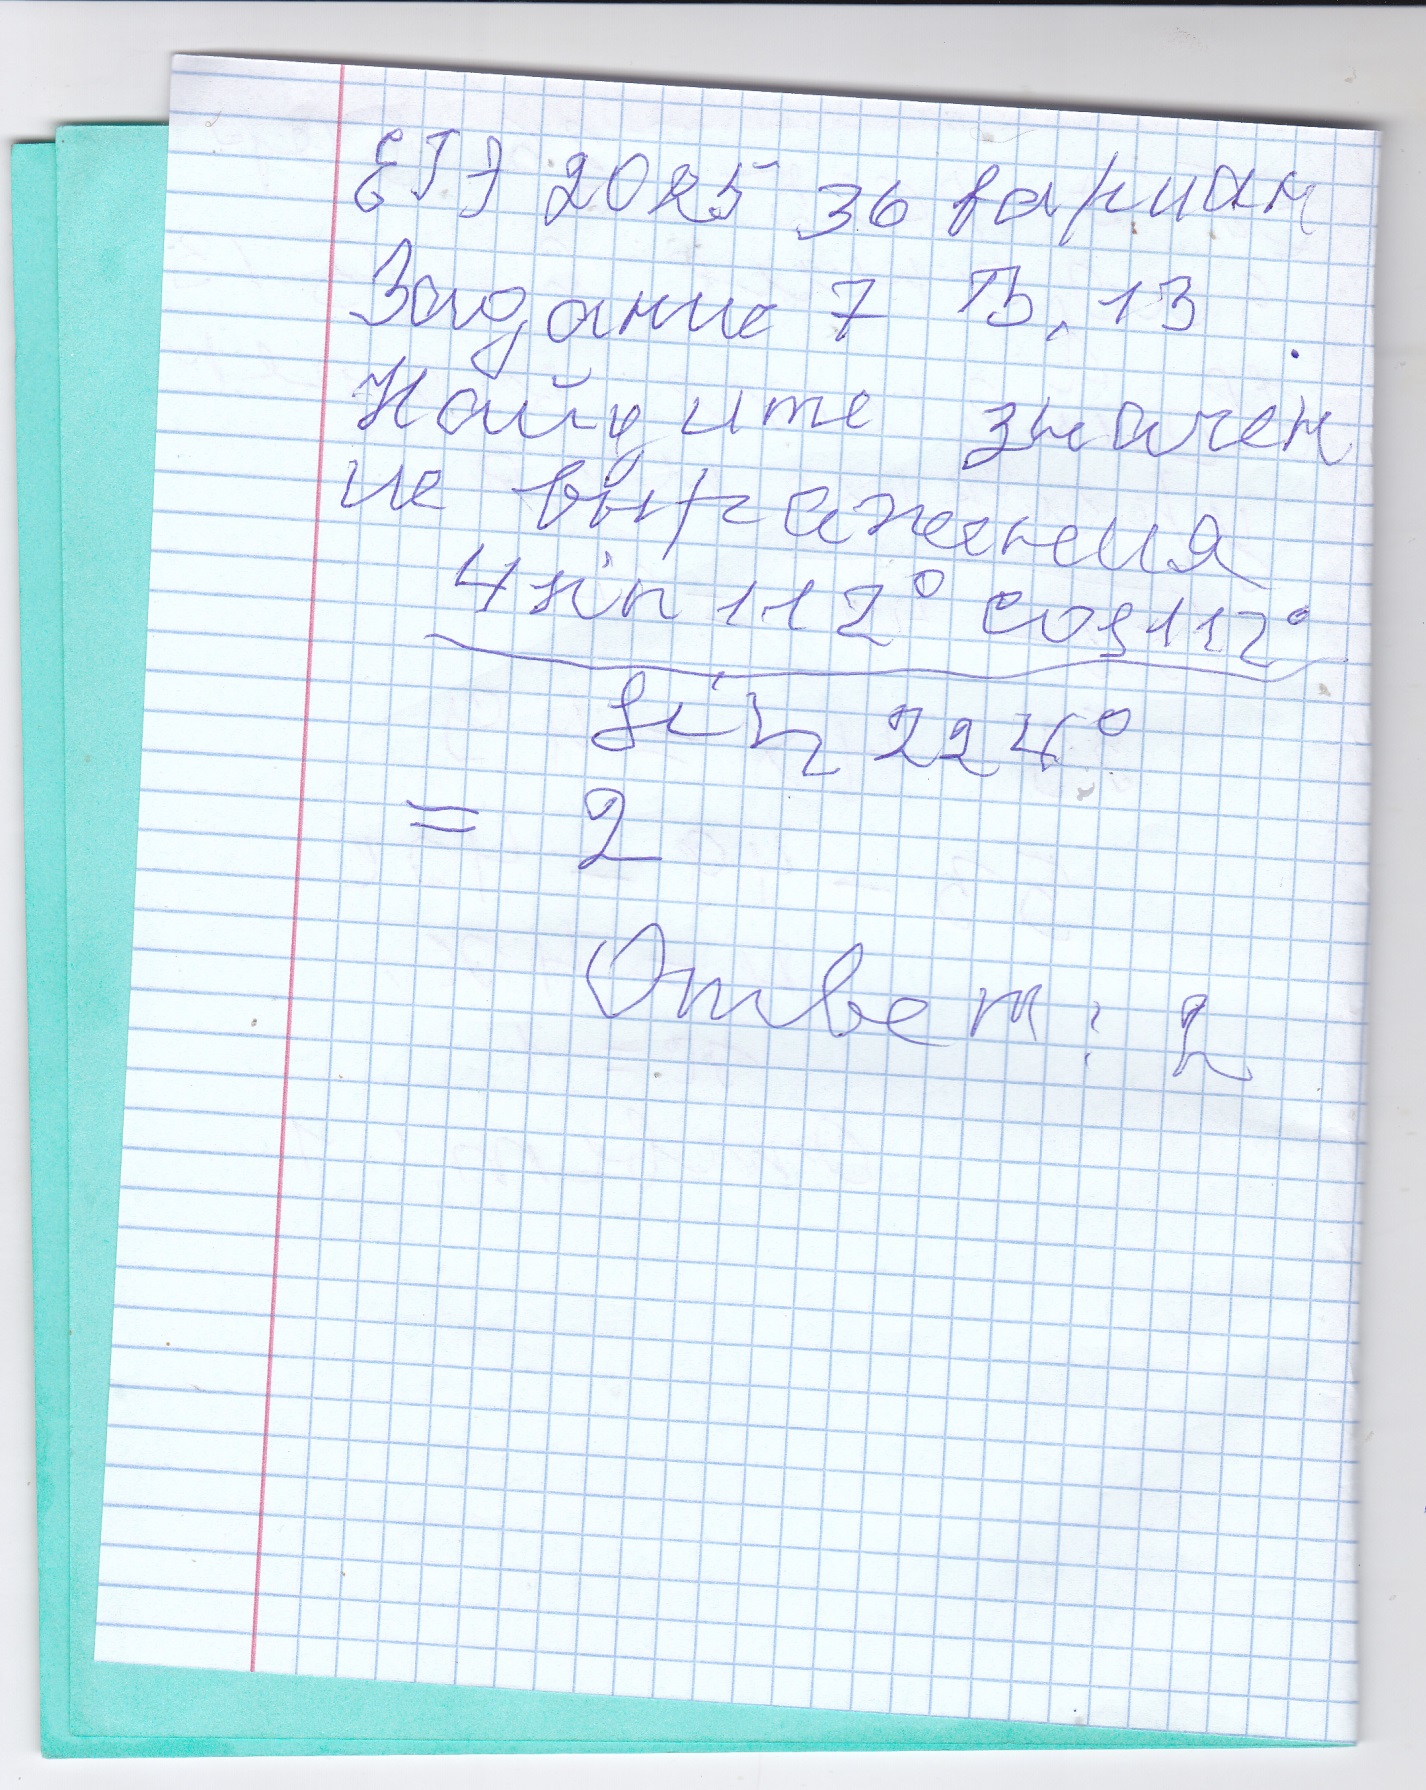 ЕГЭ 2025 36 вариан
Задание 7 В. 13
Найдите значен
ие выражения
4 sin 112° cos 112°
sin 224°
= 2
Ответ: 2